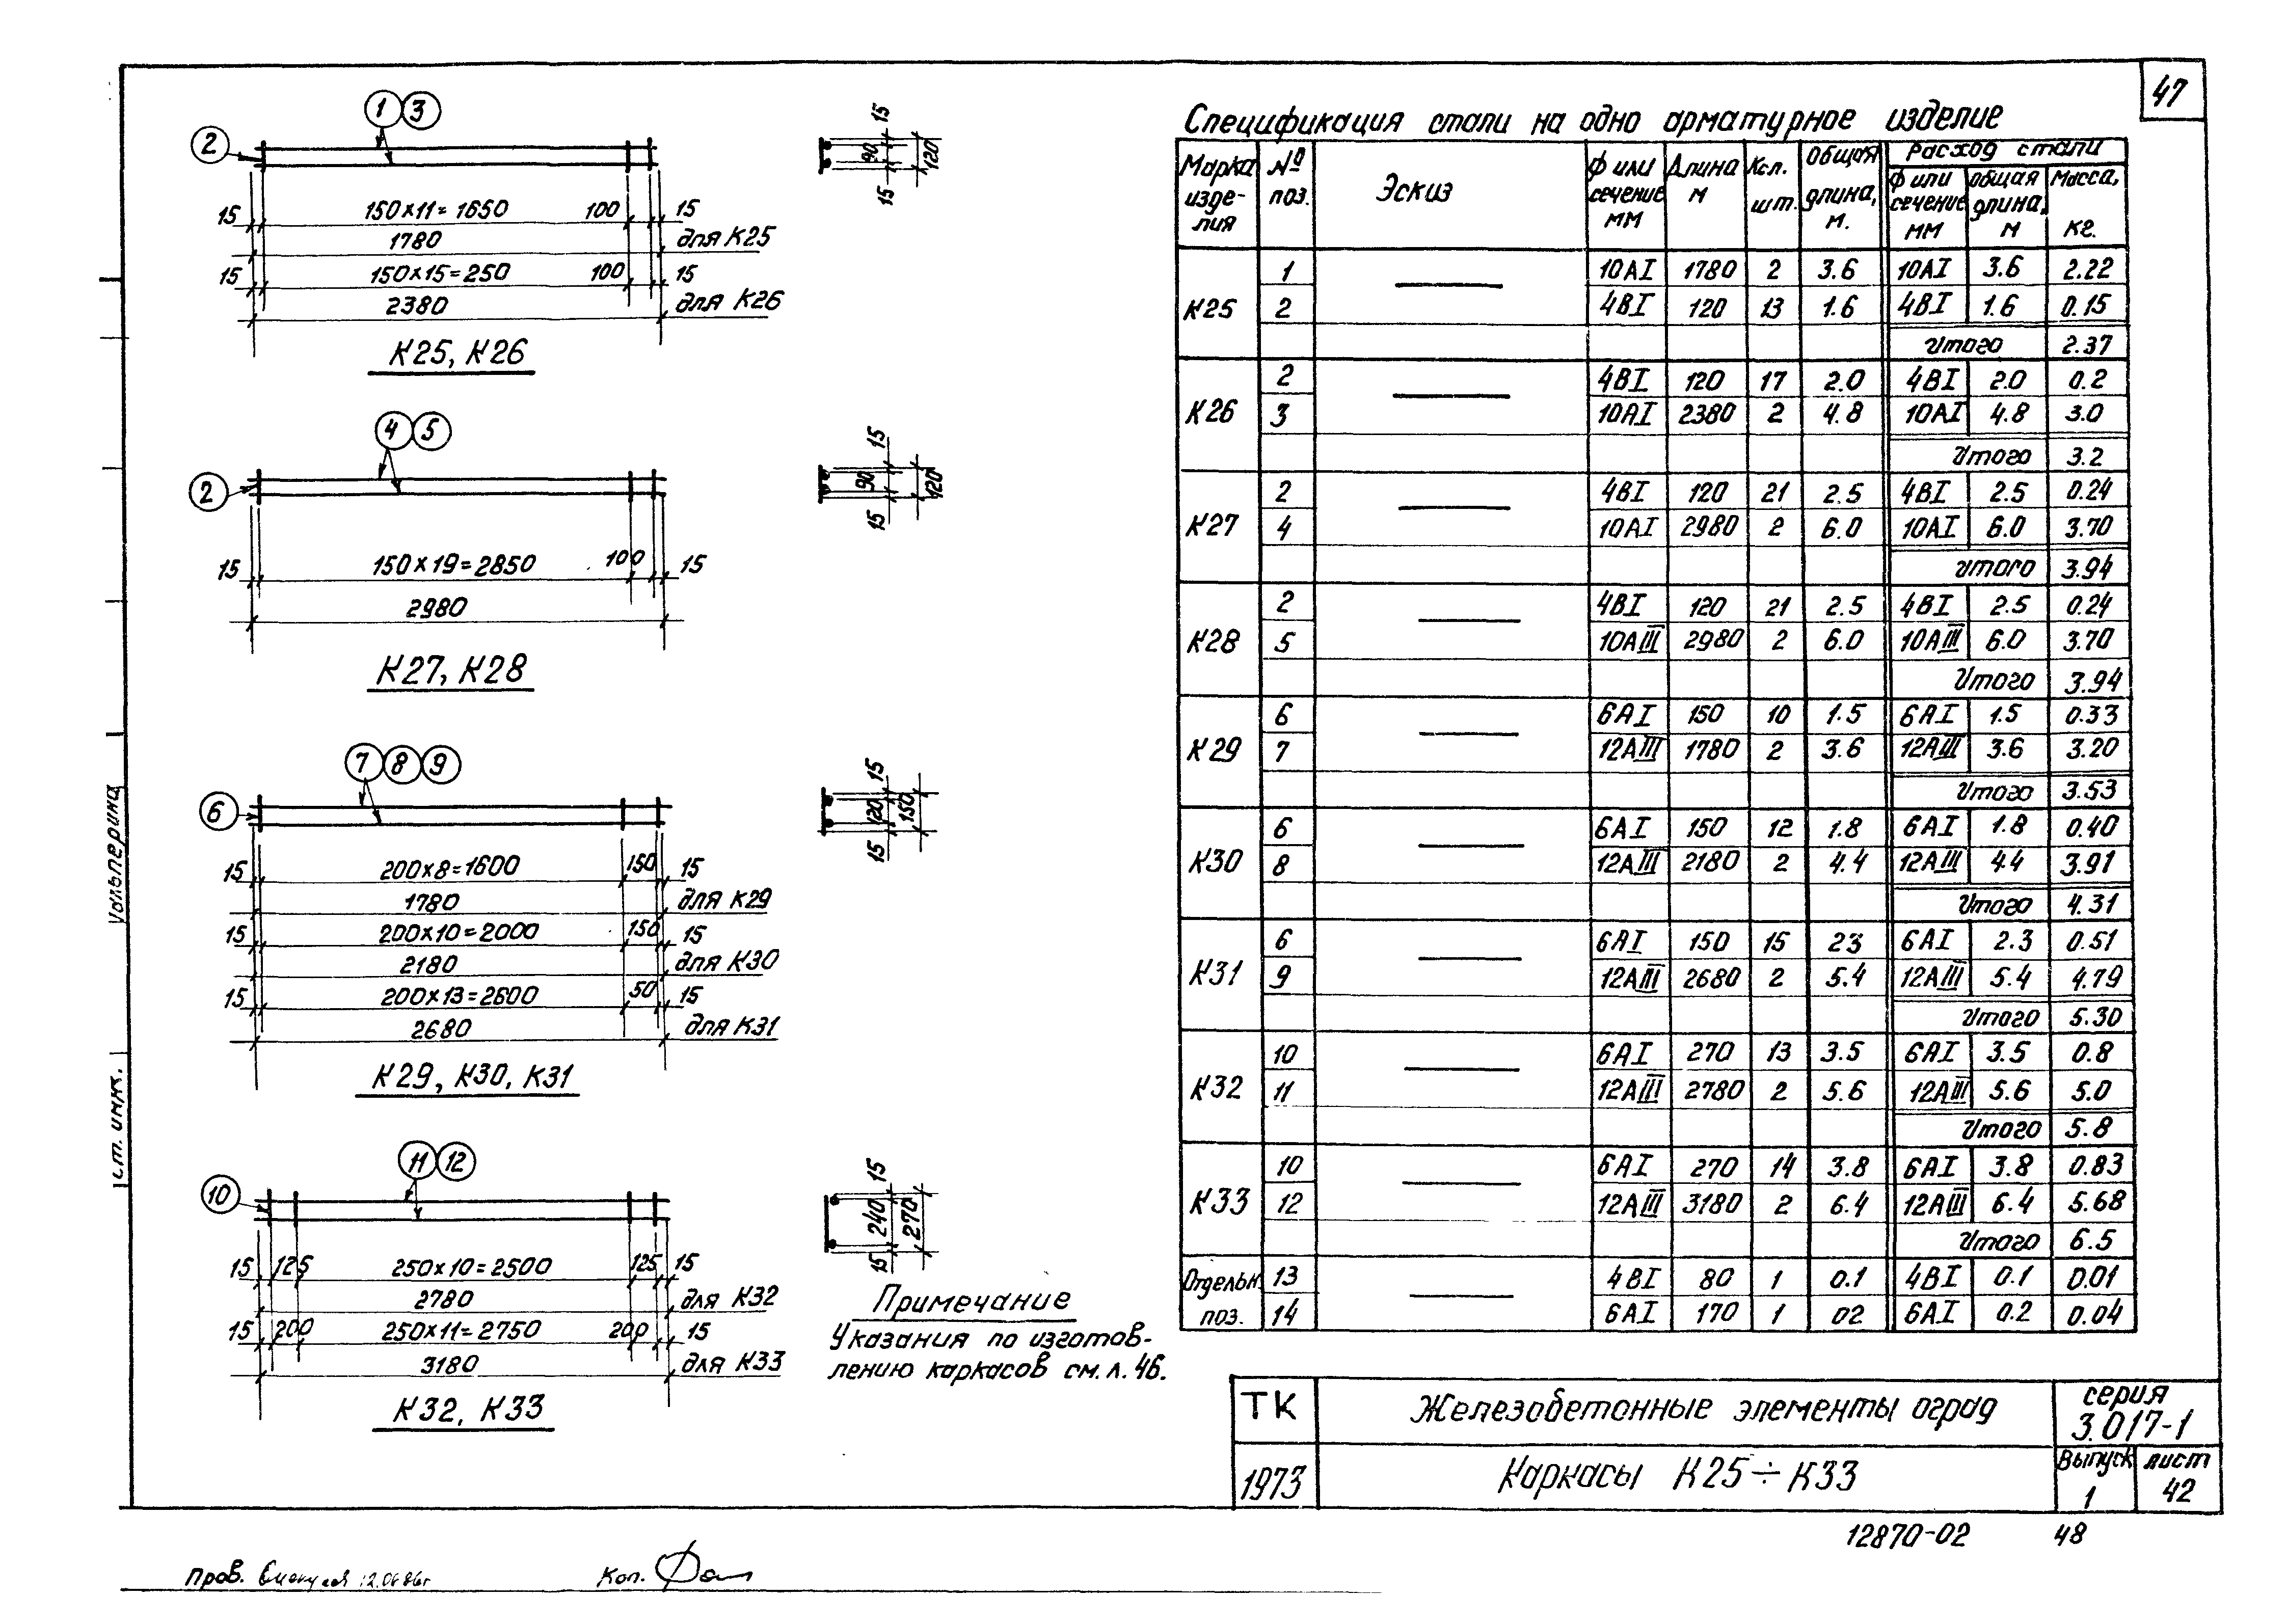 47
1 3
2
15 150×11=1650 100 15
1780 для К25
15 150×15=250 100 15
2380 для К26
К25, К26
15
90 120
15
4 5
2
15 150×19=2850 100 15
2980
К27, К28
15
90 120
15
7 8 9
6
15 200×8=1600 150 15
1780 для К29
15 200×10=2000 150 15
2180 для К30
15 200×13=2600 50 15
2680 для К31
К29, К30, К31
15
120 150
15
11 12
10
15 125 250×10=2500 125 15
2780 для К32
15 200 250×11=2750 200 15
3180 для К33
К32, К33
15
240 270
15
Примечание
Указания по изготов-
лению каркасов см. л. 46.
Спецификация стали на одно арматурное изделие
Марка изде-лия № поз. Эскиз ф или сечение мм Длина м Кол. шт. Общая длина, м. Расход стали
ф или сечение мм общая длина, м Масса, кг.
К25
1 10АI 1780 2 3.6 10АI 3.6 2.22
2 4ВI 120 13 1.6 4ВI 1.6 0.15
Итого 2.37
К26
2 4ВI 120 17 2.0 4ВI 2.0 0.2
3 10АI 2380 2 4.8 10АI 4.8 3.0
Итого 3.2
К27
2 4ВI 120 21 2.5 4ВI 2.5 0.24
4 10АI 2980 2 6.0 10АI 6.0 3.70
Итого 3.94
К28
2 4ВI 120 21 2.5 4ВI 2.5 0.24
5 10АIII 2980 2 6.0 10АIII 6.0 3.70
Итого 3.94
К29
6 6АI 150 10 1.5 6АI 1.5 0.33
7 12АIII 1780 2 3.6 12АIII 3.6 3.20
Итого 3.53
К30
6 6АI 150 12 1.8 6АI 1.8 0.40
8 12АIII 2180 2 4.4 12АIII 4.4 3.91
Итого 4.31
К31
6 6АI 150 15 23 6АI 2.3 0.51
9 12АIII 2680 2 5.4 12АIII 5.4 4.79
Итого 5.30
К32
10 6АI 270 13 3.5 6АI 3.5 0.8
11 12АIII 2780 2 5.6 12АIII 5.6 5.0
Итого 5.8
К33
10 6АI 270 14 3.8 6АI 3.8 0.83
12 12АIII 3180 2 6.4 12АIII 6.4 5.68
Итого 6.5
Отдельн. поз.
13 4ВI 80 1 0.1 4ВI 0.1 0.01
14 6АI 170 1 02 6АI 0.2 0.04
ТК Железобетонные элементы оград серия
3.017-1
1973 Каркасы К25÷К33 Выпуск лист
1 42
12870-02 48
ст. инж.
Пров. 12.06.86г Коп.